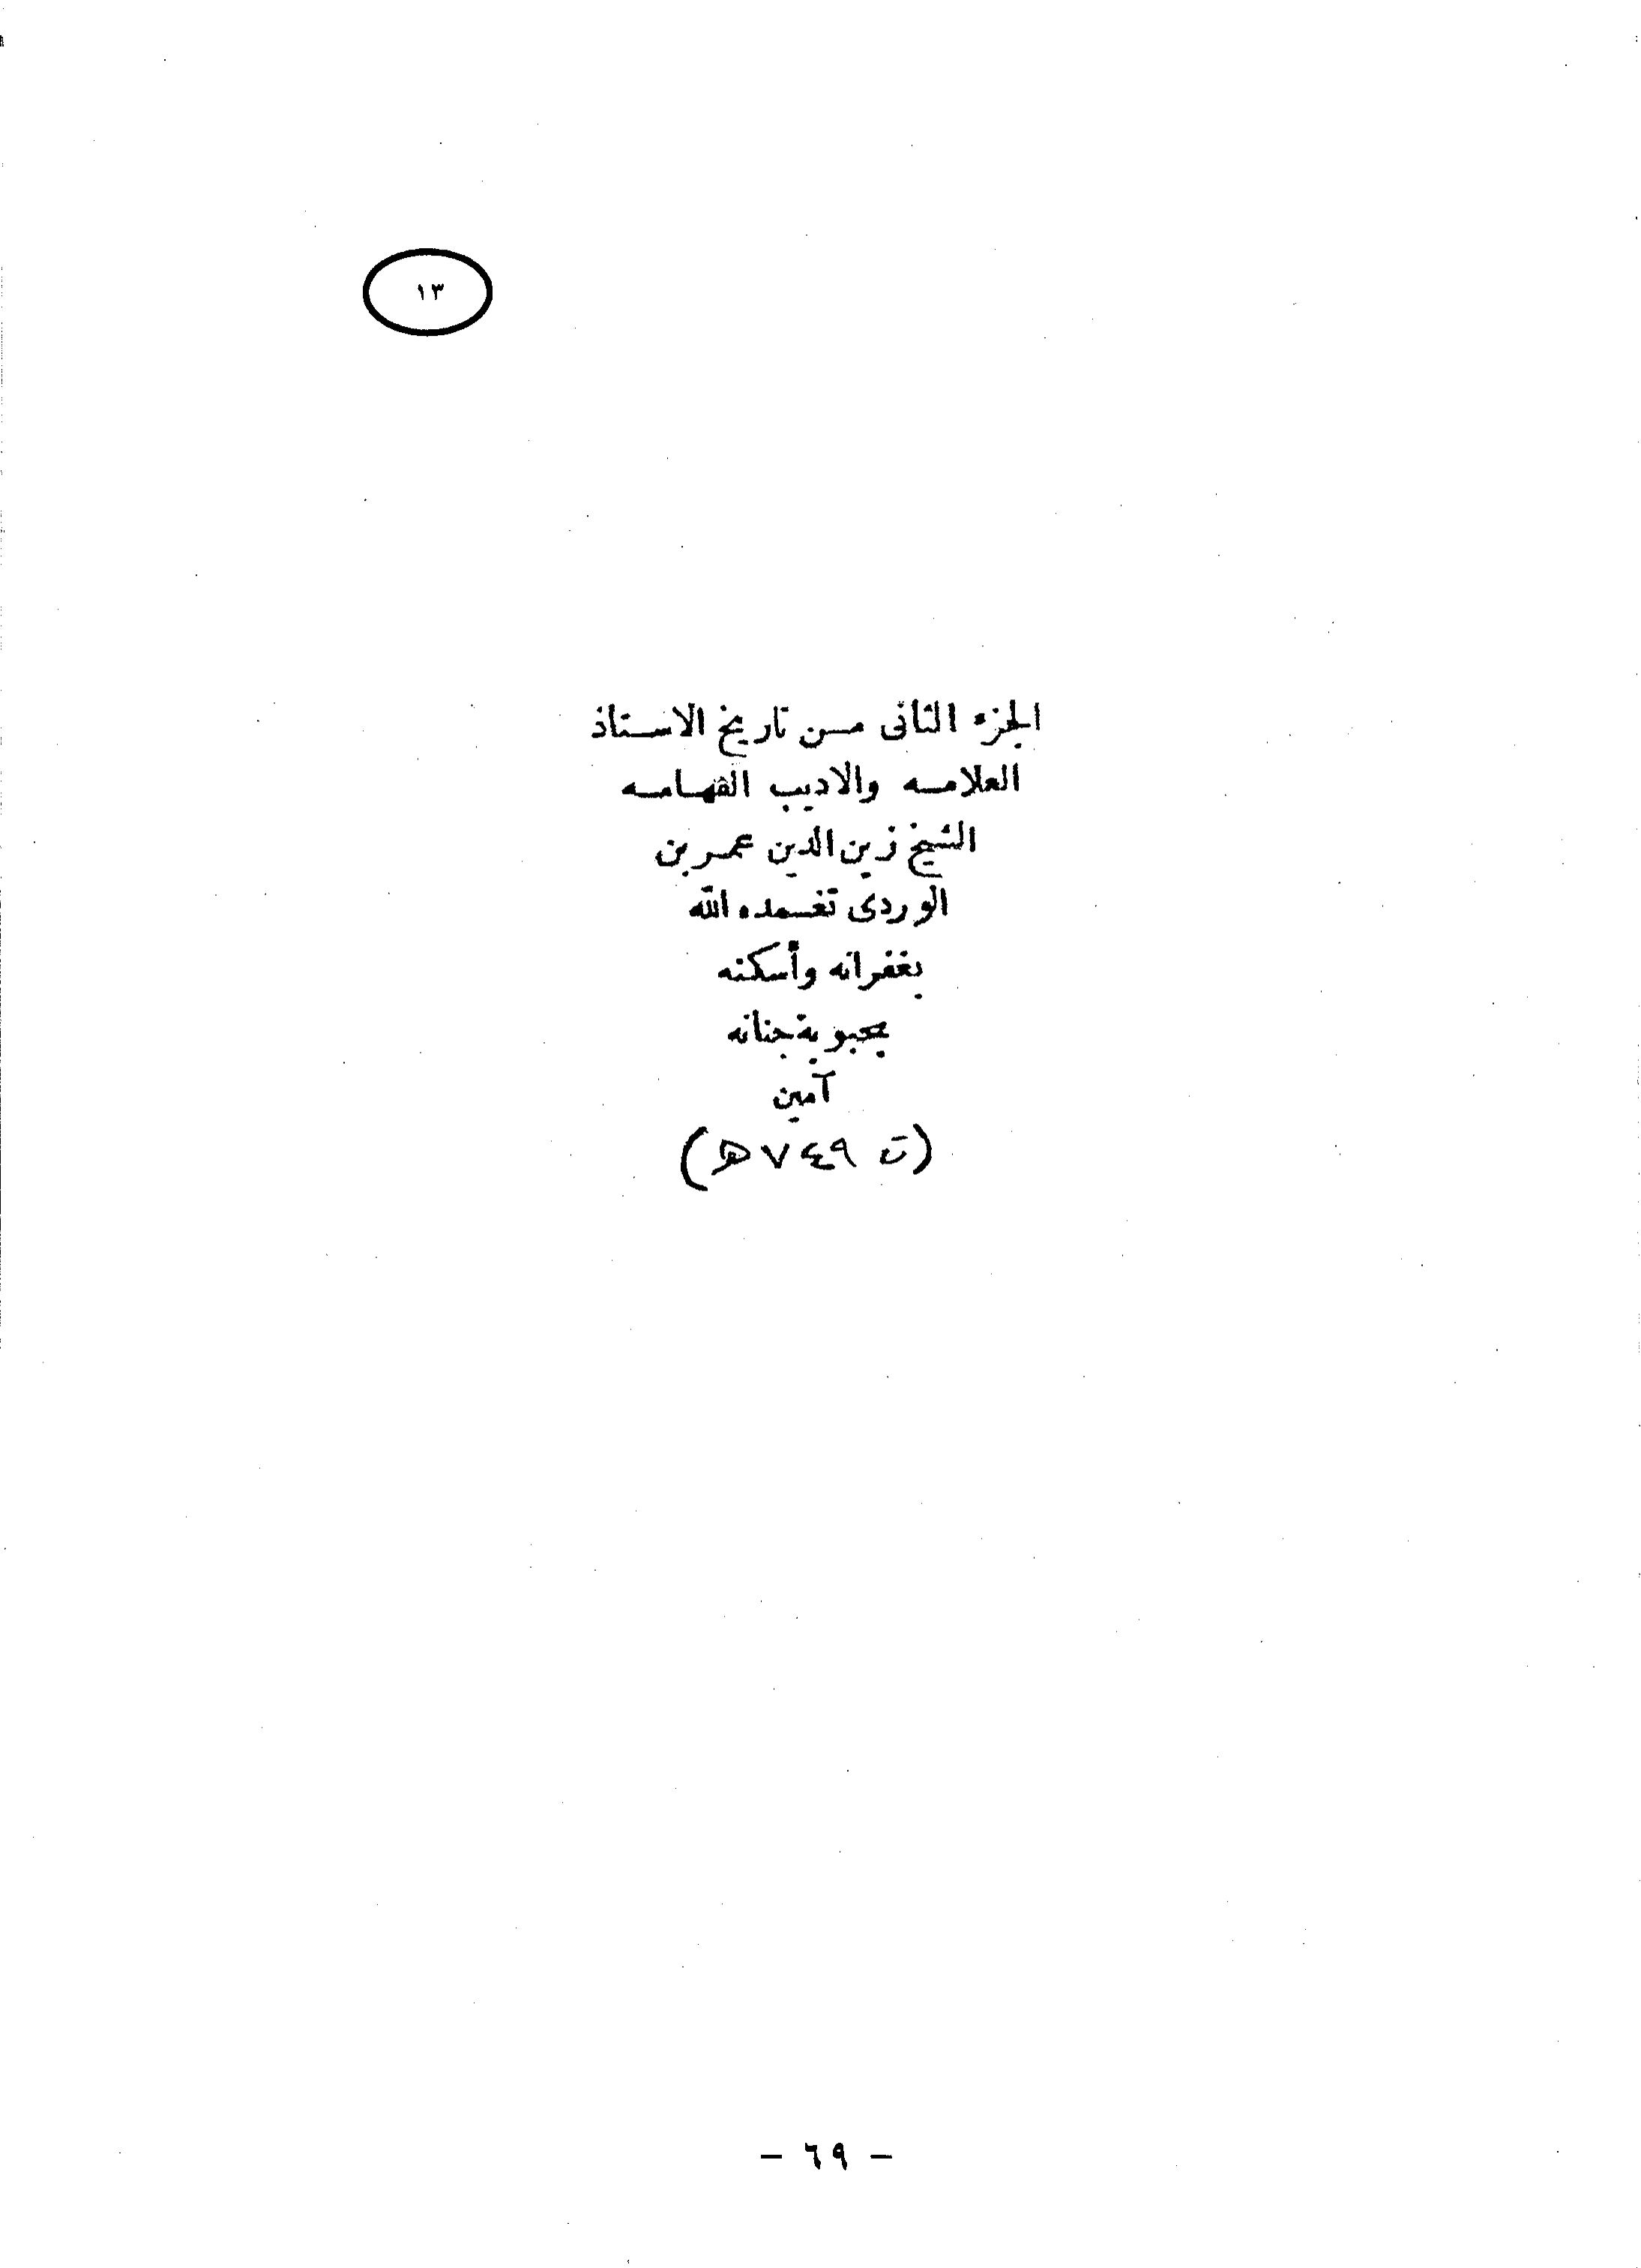 ١٣
الجزء الثانى من تاريخ الاستاذ
العلامه والاديب الفهامه
الشيخ زين الدين عمر بن
الوردى تغمده الله
بغفرانه وأسكنه
بحبوبة جنانه
آمين
(ت ٧٤٩ هـ)
- ٦٩ -